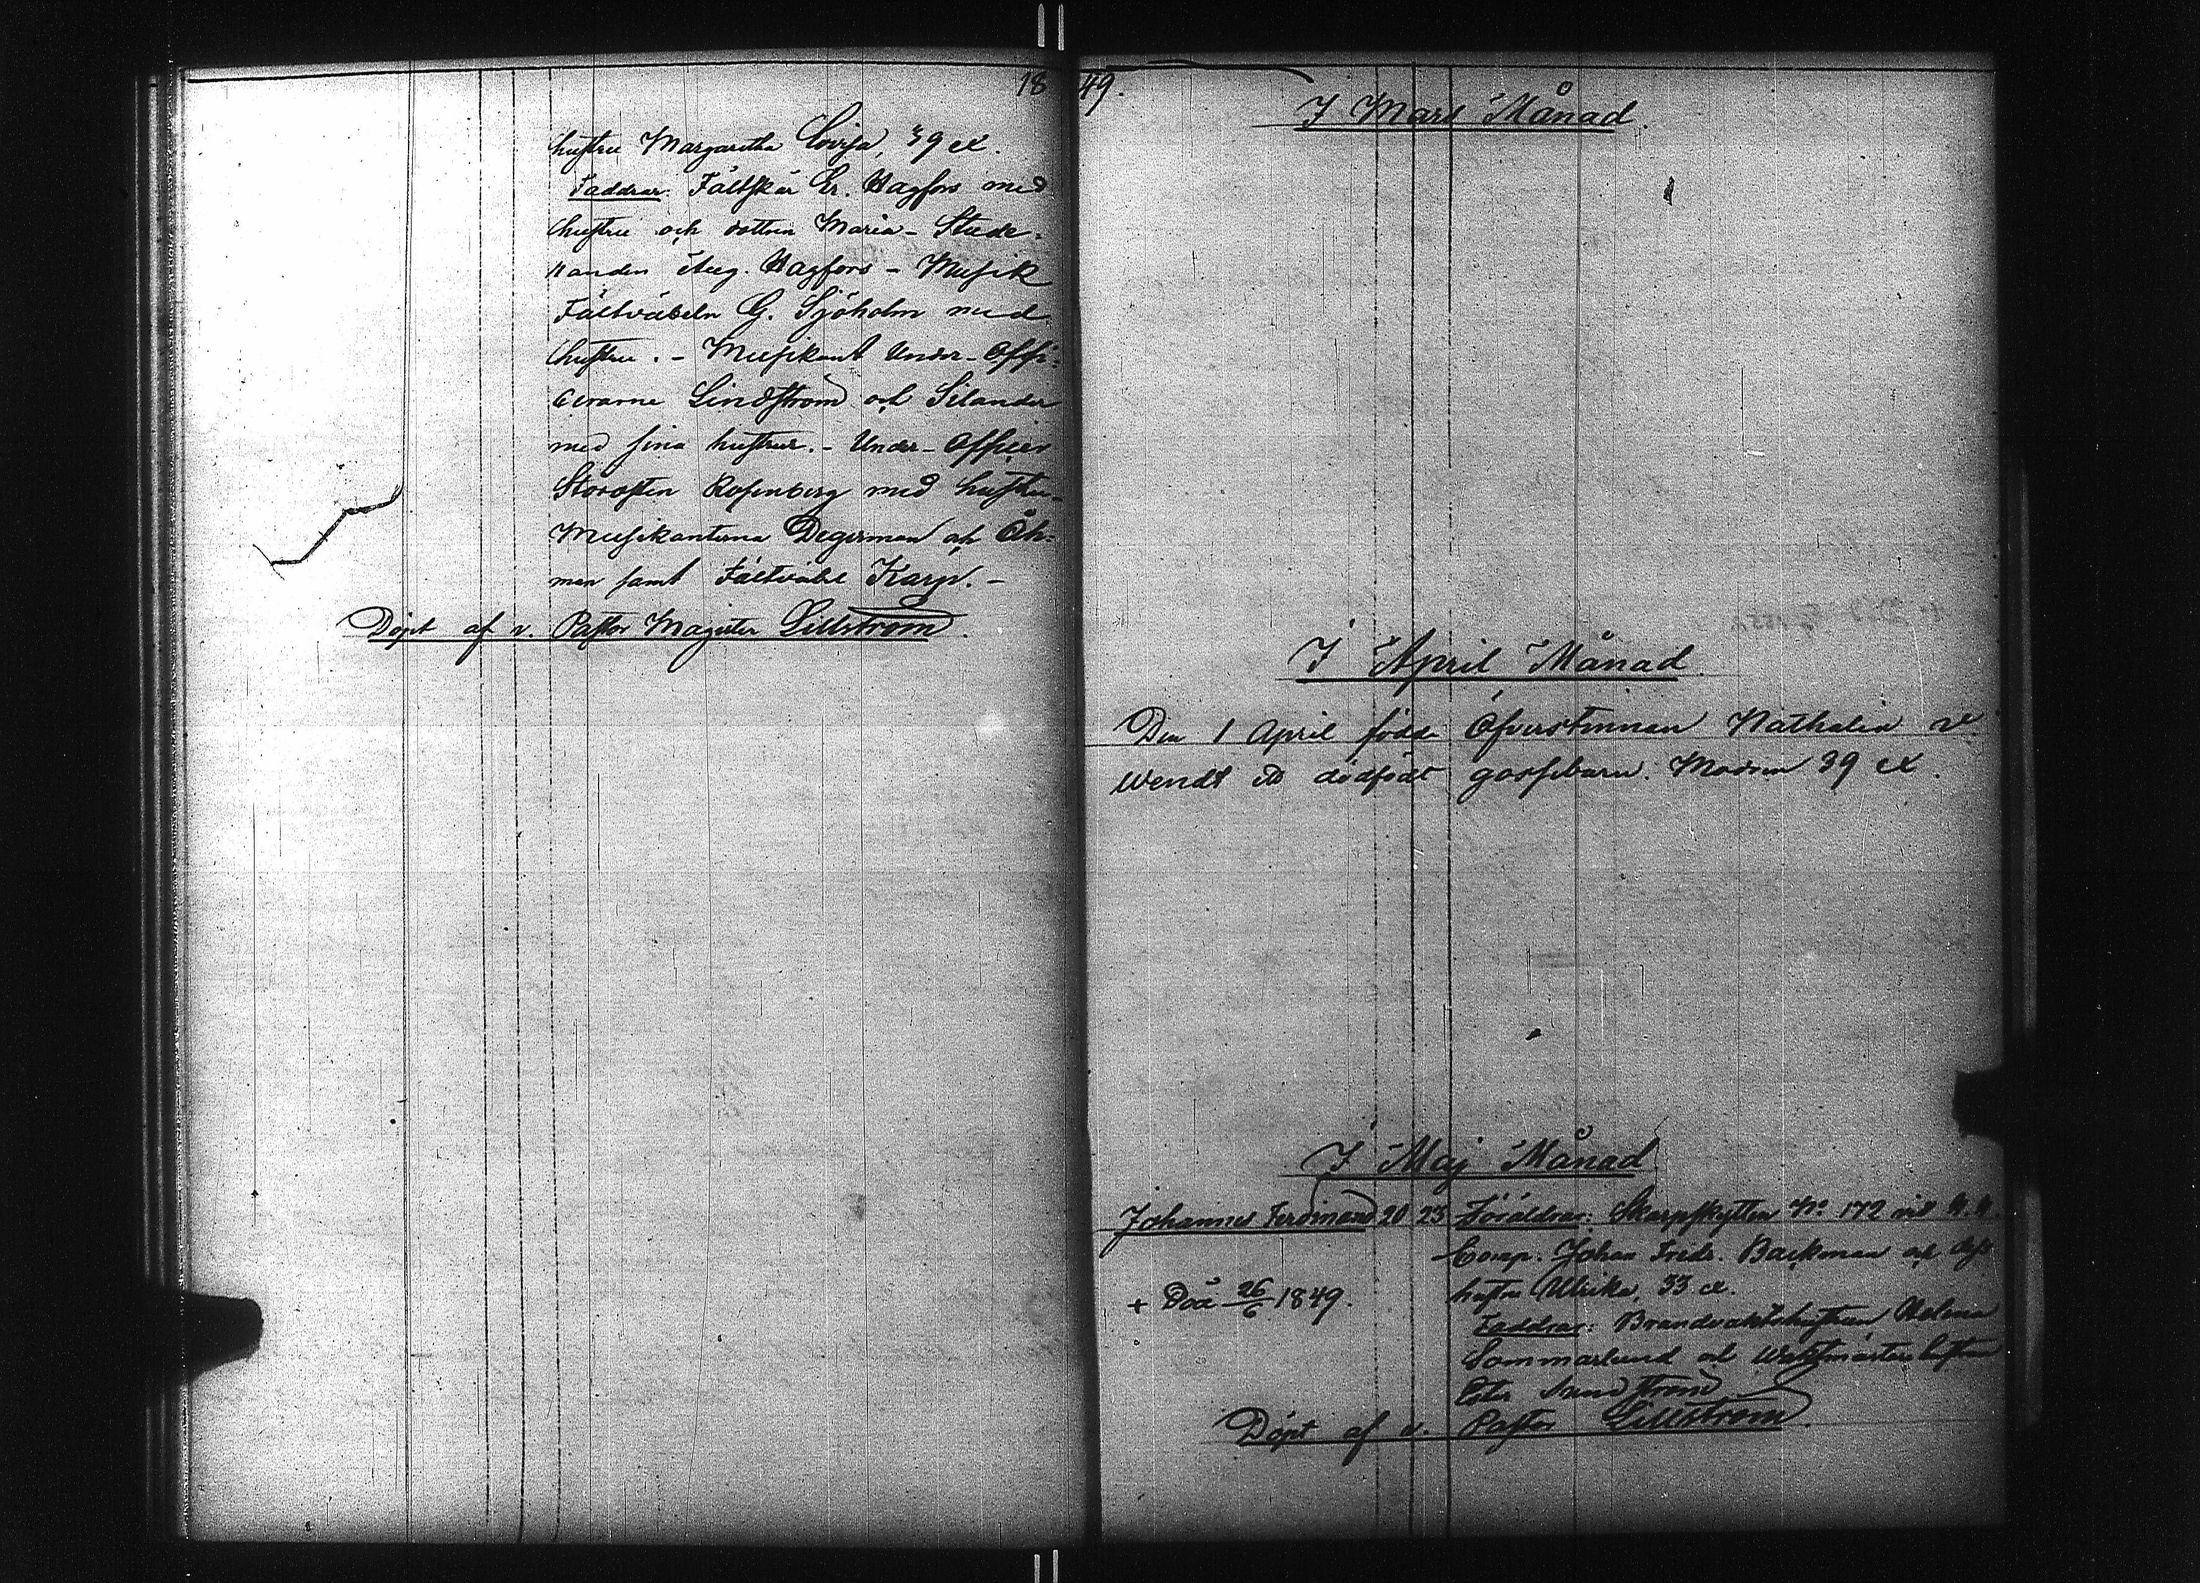 18
hustru Margaretha Lovisa, 39 ....
Faddrar: Fältskär Er. Hagfors med
hustru och dottren Maria – Stude-
randen Aug. Hagfors – Musik
Fältväbeln G. Sjöholm med
hustru. – Musikant Under-Offi-
cerarne Lindström och Silander
med sina hustrur. – Under-Officer
Storosten Rosenberg med hustru –
Musikanterna Degerman och Åh-
man samt Fältväbl Karp. –
Döpt af v. Pastor Magister Lillström.
49.
I Mars Månad.
I April Månad
Den 1 April födde Öfverstinnan Nathalia v.
Wendt ett dödfödt gossebarn. Modren 39
I Maj Månad
Johannes Ferdinand 20 23 Föräldrar: Skarpskytten No 172 vid
Comp. Johan Fredr. Backman och dess
hustru Ulrika, 33
+ Död 26/6 1849.
Faddrar: Brandvaktshustrun Helena
Sommarlund och Waktmästarehustrun
Döpt af v. Pastor Lillström.